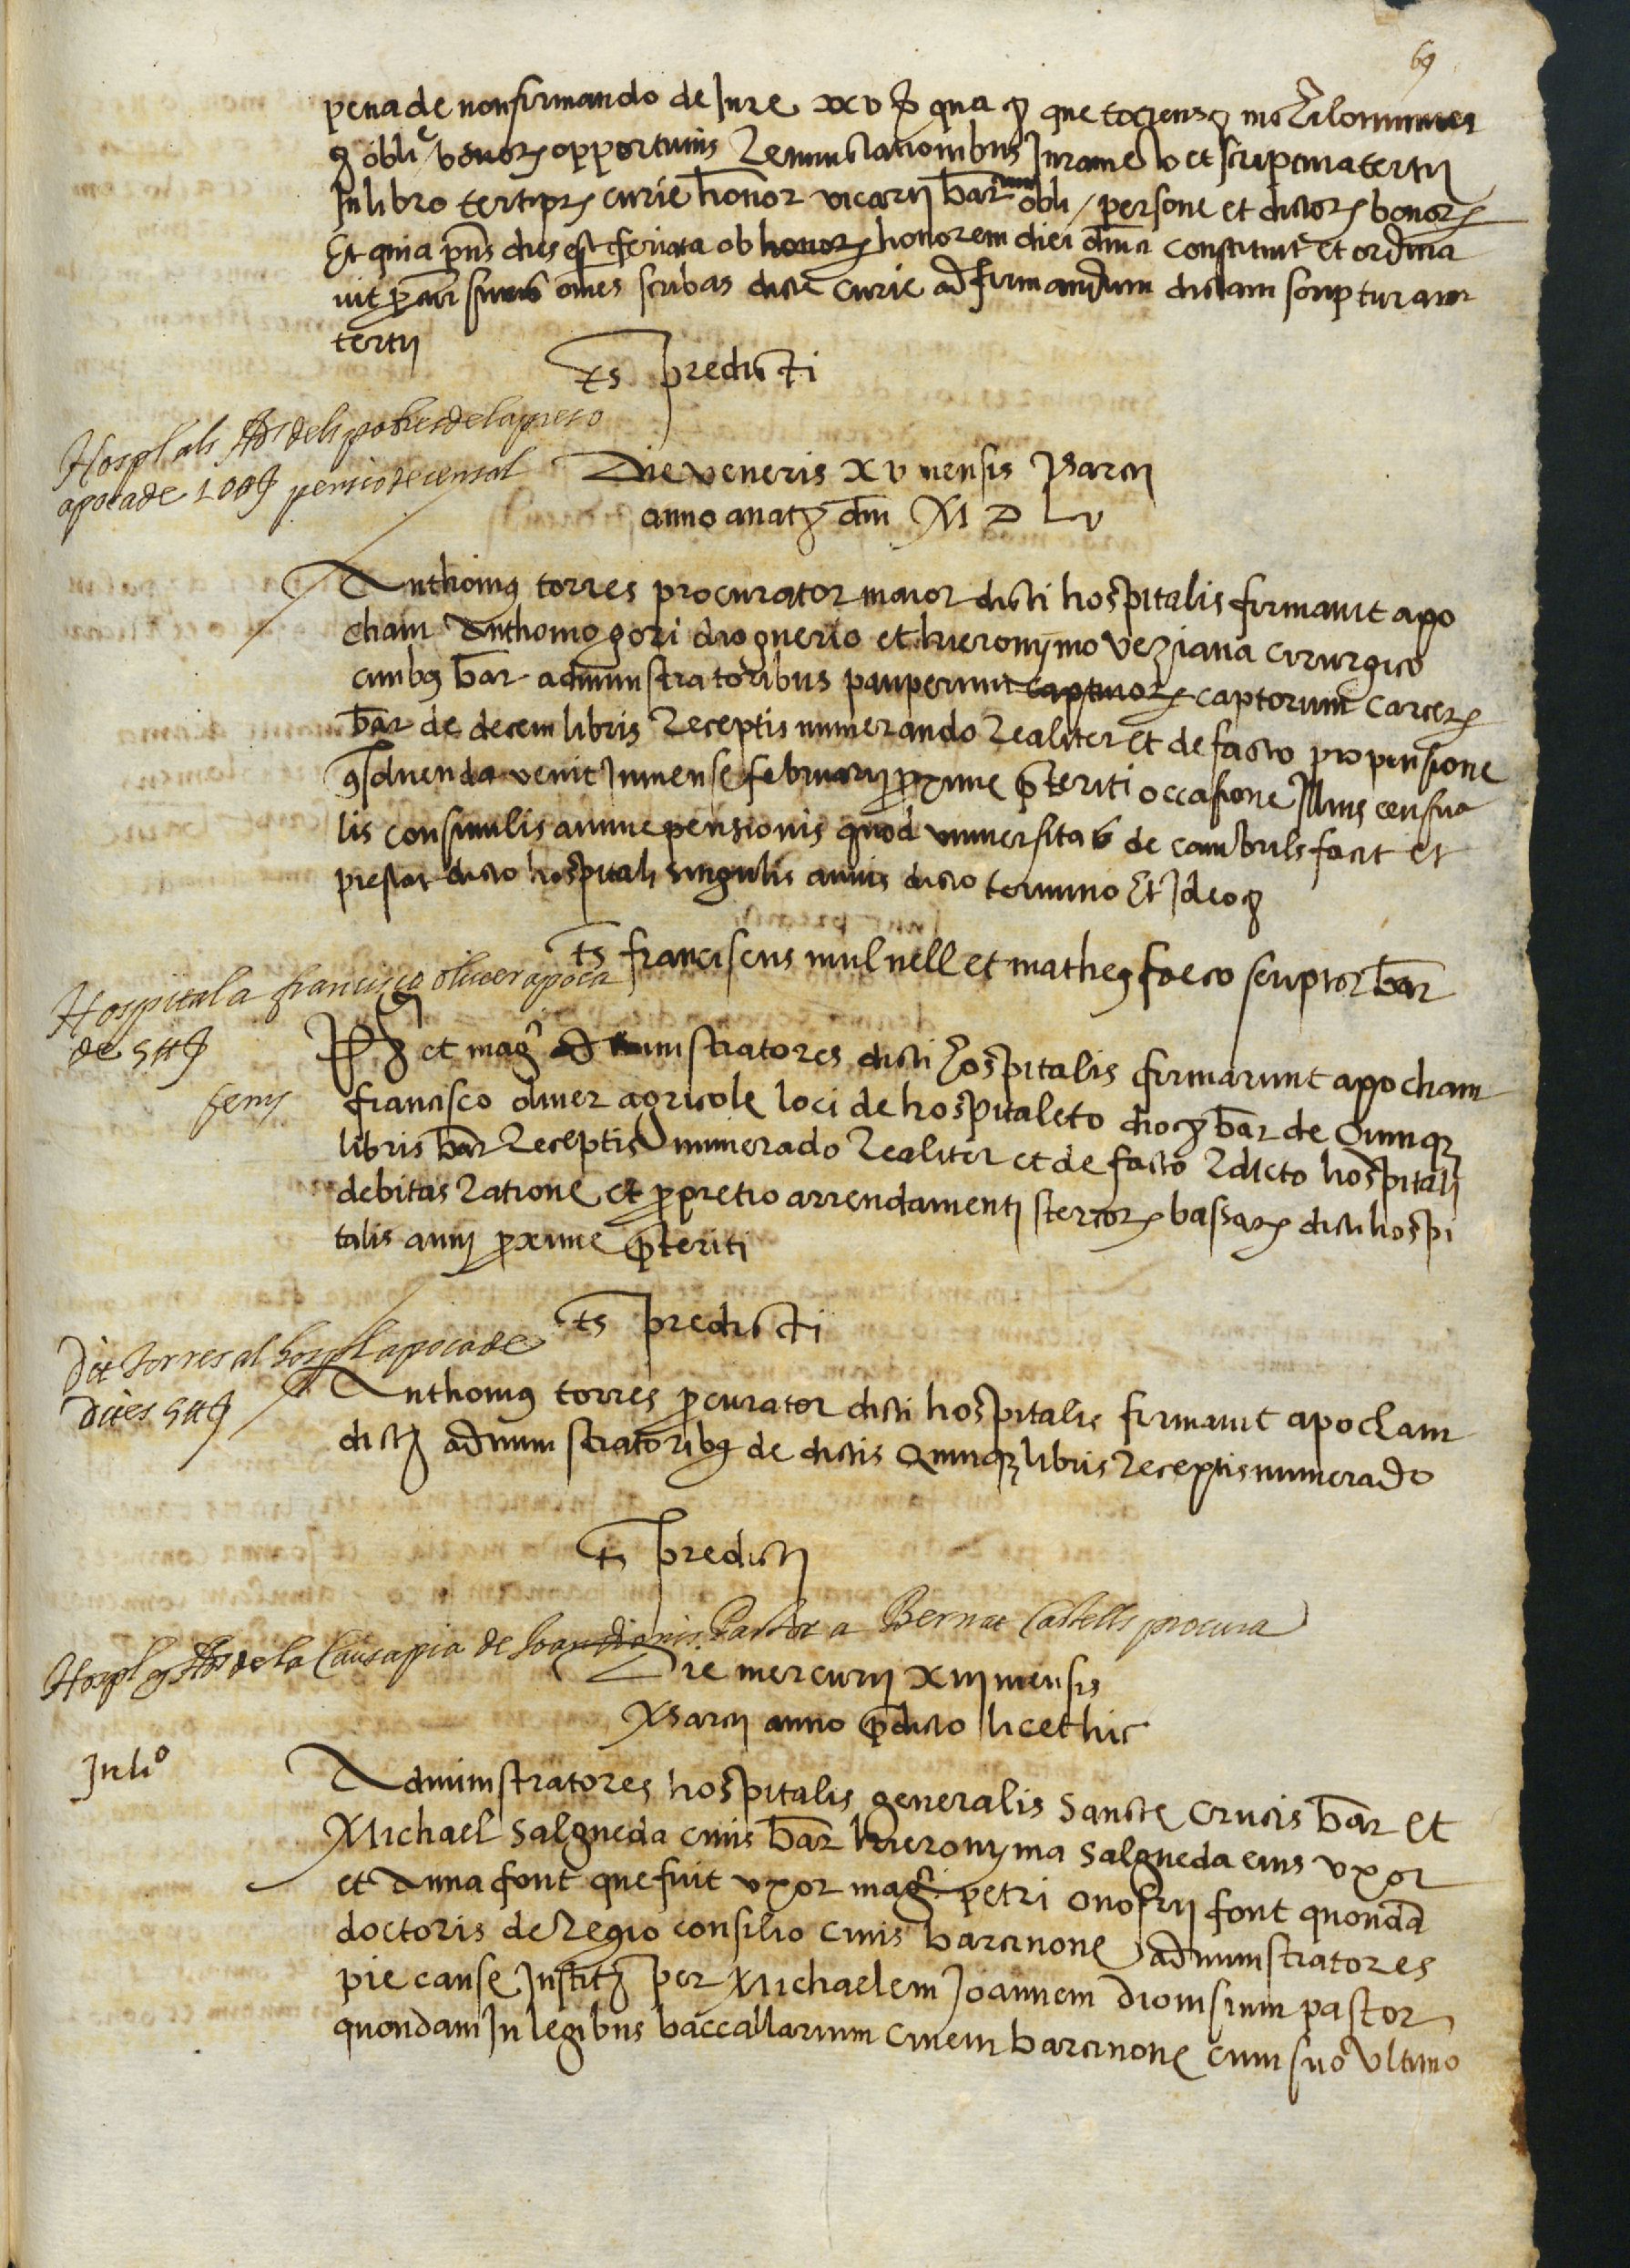 69
pena de non firmando de Jure xxv ß qua ꝯ que tociens ꝯ
ꝯ obli bonoꝝ opportunis Renunctiationibus Juramto et scriptura tertii
In libro tertioꝝ curie honor vicarii bar̄ obli / persone et dictoꝝ bonoꝝ
Et quia pn̄s dies est feriata ob honoꝝ honorem diei dm̄ca constituit et ordina
vit ꝓcur̄ suos om̄es scribas dicte curie ad firmandum dictam scripturam
tertii
ts predicti
Hospl als Ad͞rs dels pobres de la preso
apoca de 10 ₶ pensio de censal
Die veneris xv mensis Marcii
anno a natꝯ dn̄i M D Lv
Anthoniꝯ torres procurator maior dicti hospitalis firmavit apo
cham Anthonio gori droguerio et hieronymo veziana cirurgico
civibꝯ bar̄ administratoribus pauperum captivoꝝ captorum carceꝝ
bar̄ de decem libris Receptis numerando Realiter et de facto pro pensione
ꝯsolvenda venit In mense februarii ꝓxime p̄teriti occasione Illius censua
lis consimilis annue pensionis quod universitas de cambrils facit et
prestat dicto hospitali singulis annis dicto termino Et Ideo ꝯ
ts franciscus mulnell et matheꝯ faeco scriptor bar̄
Hospital a francisco oliver apoca
de 5 ₶
fems
et mag͞ci administratores dicti hospitalis firmarunt apocham
francisco oliver agricole loci de hospitaleto diocꝯ bar̄ de Quinqꝫ
libris bar̄ Receptis numerado Realiter et de facto dicto hospitali
debitas Ratione et ꝓ pretio arrendamenti stercoꝝ bassaꝝ dicti hospi
talis anni ꝓxime p̄teriti
ts predicti
Dit torres al hospl apoca de
dites 5 ₶
Anthoniꝯ torres ꝓcurator dicti hospitalis firmavit apocham
dictꝯ administratoribꝯ de dictis Quinqꝫ libris Receptis numerado
ts predicti
Hospl y Ad͞rs de la Causa pia de Joan dionis Pastor a Bernat Castells procura
Die mercurii xiii mensis
Marcii anno p̄dicto licet hic
In liº
Administratores hospitalis generalis Sancte Crucis bar̄ et
Michael Salgueda civis bar̄ hieronyma Salgueda eius vxor
et Anna font que fuit vxor mag͞ci petri onofrii font quondā
doctoris de Regio consilio civis barcinone administratores
pie cause Institꝯ per Michaelem Joannem dionisium pastor
quondam In legibus baccallarium civem barcinone cum suo vltimo